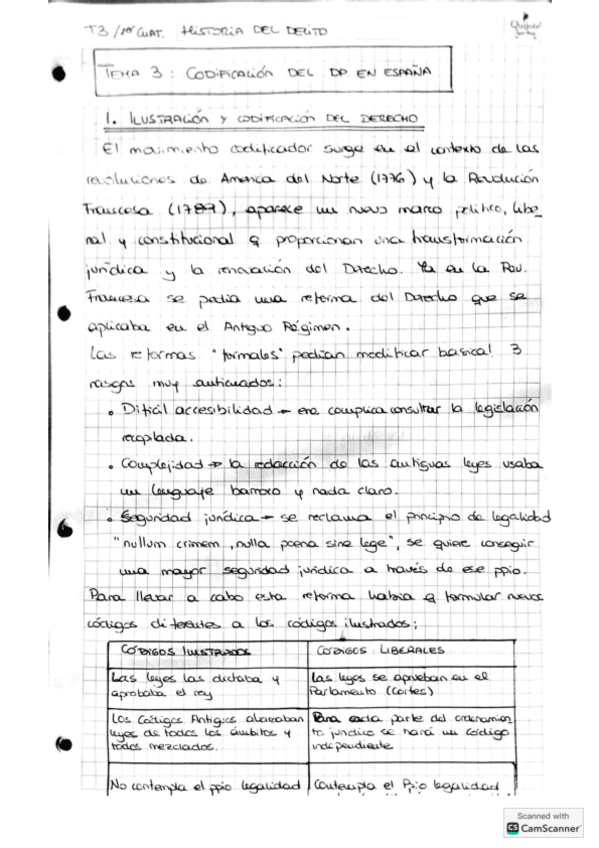 T3/1er CUAT. HISTORIA DEL DELITO
TEMA 3: CODIFICACIÓN DEL DP EN ESPAÑA
1. ILUSTRACIÓN Y CODIFICACIÓN DEL DERECHO
El movimiento codificador surge en el contexto de las
revoluciones de America del Norte (1776) y la Revolución
Francesa (1789), aparece un nuevo marco político, libe
ral y constitucional q proporcionan una transformación
jurídica y la renovación del Derecho. Ya en la Rev.
Francesa se pedía una reforma del Derecho que se
aplicaba en el Antiguo Régimen.
Las reformas "formales" podían modificar basical 3
rasgos muy anticuados:
• Difícil accesibilidad → era complica consultar la legislación
recopilada.
• Complejidad → la redacción de las antiguas leyes usaba
un lenguaje barroco y nada claro.
• Seguridad jurídica → se reclama el principio de legalidad
"nullum crimem, nulla poena sine lege", se quiere conseguir
una mayor seguridad jurídica a través de ese ppio.
Para llevar a cabo esta reforma había q formular nuevos
códigos diferentes a los códigos ilustrados:
CÓDIGOS ILUSTRADOS
CÓDIGOS LIBERALES
Las leyes las dictaba y
aprobaba el rey
Las leyes se aprueban en el
Parlamento (Cortes)
Los Códigos Antigios abarcaban
leyes de todos los ámbitos y
todos mezclados.
Para cada parte del ordenamien
to jurídico se hará un código
independiente
No contempla el ppio legalidad
Contempla el Ppio legalidad
Scanned with
CS CamScanner